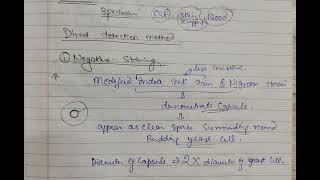 Specimen CSF, skin, Blood
Direct detection method
① Negative Staining
less sensitive
Modified India Ink stain & Nigrosin stain
demonstrate Capsule.
appear as clear space surrounding round
Budding yeast cell.
Diameter of Capsule ⇒ 2X diameter of yeast cell.